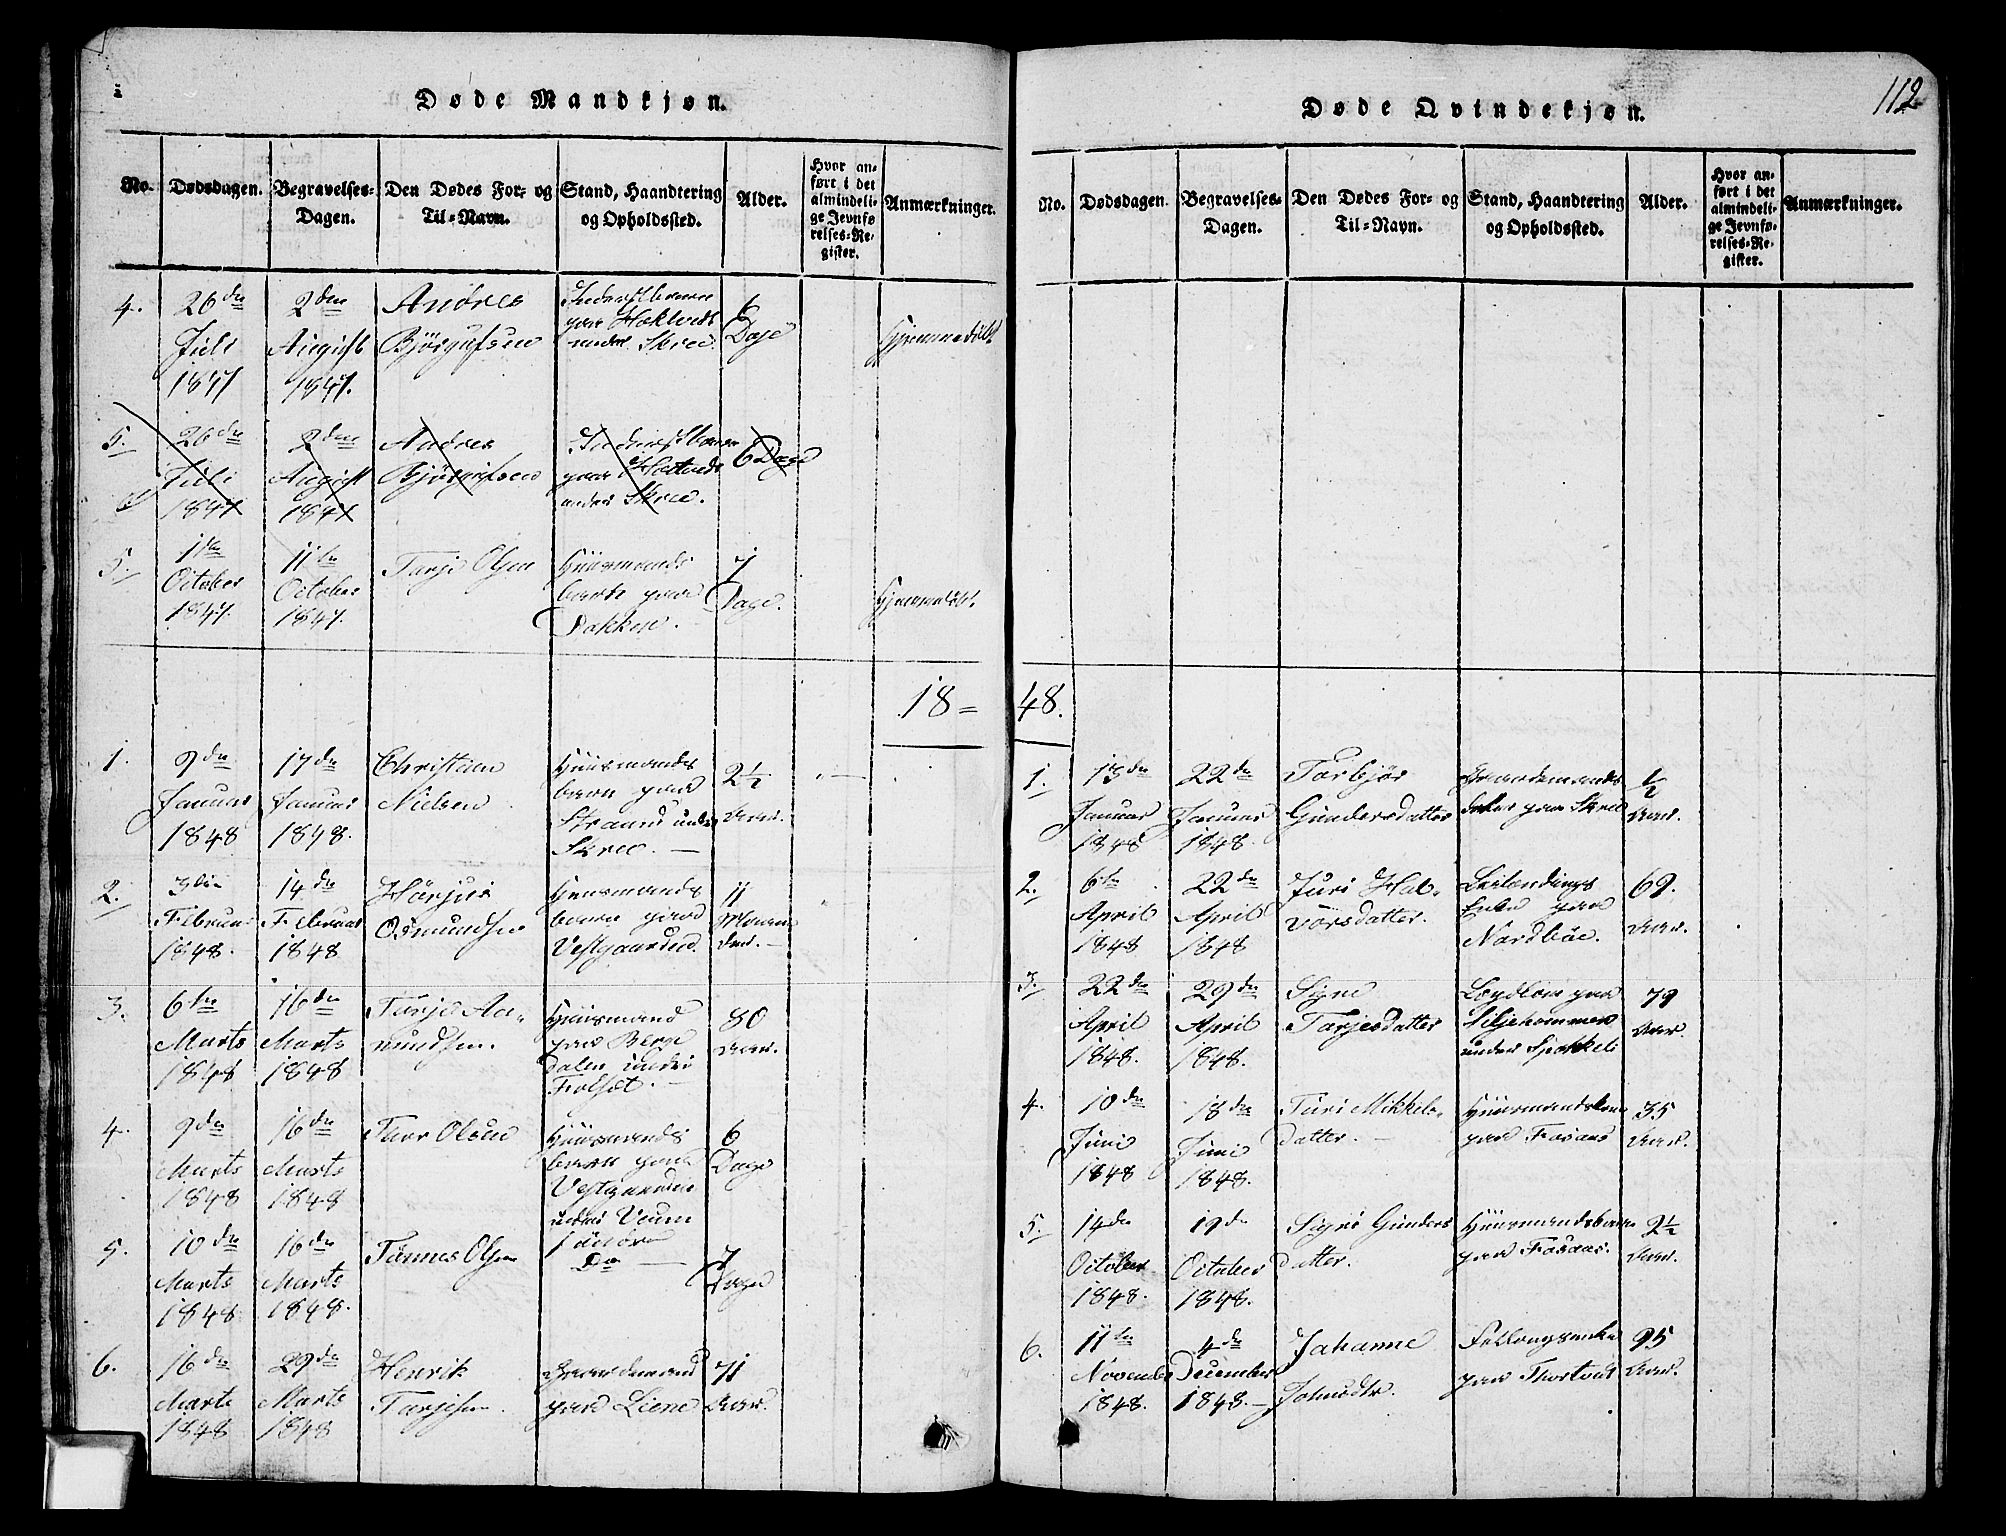 Døde Mandkjøn.
No. Dødsdagen. Begravelses-Dagen. Den Dødes For- og Til-Navn. Stand, Haandtering og Opholdssted. Alder. Hvor anført i det almindelige Jevnførelses-Register. Anmærkninger.
4. 26de Juli 1847 2den August 1847. Andres Björgufsen paa under Skree. 6 Dage Hjemmedøbt
5. 26de Juli 1847 2den August 1847 Andres Björgufsen paa under Skree. 6 Dage
5. 1ste October 1847. 11te October 1847. Tarje Olsen Huusmands barn paa Bakken. 7 Dage. Hjemmedøbt.
18=48.
1. 9de Januar 1848 17de Januar 1848. Christian Nielsen Huusmands barn paa Strand under Skree. 2½ Aar.
2. 3die Februar 1848. 14de Februar 1848 Osmundsen Huusmands barn paa Vestgaarden. 11 Maaneder.
3. 6te Marts 1848 16de Marts 1848 Tarje Aamundsen. Huusmand paa Bergdalen under 80 Aar.
4. 9de Marts 1848 16de Marts 1848 Thor Olsen Huusmands barn paa Vestgaarden under Veum 6 Dage
5. 10de Marts 1848 16de Marts 1848. Tannes Olsen Do 7 Dage
6. 16de Marts 1848 29de Marts 1848 Henrik Tarjesen. Gaardmand paa Liene 71 Aar.
112
Døde Qvindekjøn.
No. Dødsdagen. Begravelses-Dagen. Den Dødes For- og Til-Navn. Stand, Haandtering og Opholdssted. Alder. Hvor anført i det almindelige Jevnførelses-Register. Anmærkninger.
1. 13de Januar 1848 22de Januar 1848. Torbjör Gundersdatter Gaardmands datter paa Skree ½ Aar.
2. 6te April 1848 22de April 1848 Juri Halvorsdatter. Leilændings Enke paa Nordbøe. 69. Aar.
3. 22de April 1848. 29de April 1848. Signe Tarjesdatter Lægdlem paa under 79 Aar.
4. 10de Juni 1848 18de Juni 1848. Turi Mikkelsdatter. Huusmandskone paa Fosaas 35 Aar.
5. 14de October 1848. 19de October 1848. Sigri Gundersdatter. Huusmandsbarn paa Fosaas. 2½ Aar.
6. 11te November 1848. 4de December 1848. Johanne Johnsdtr. paa 95 Aar.